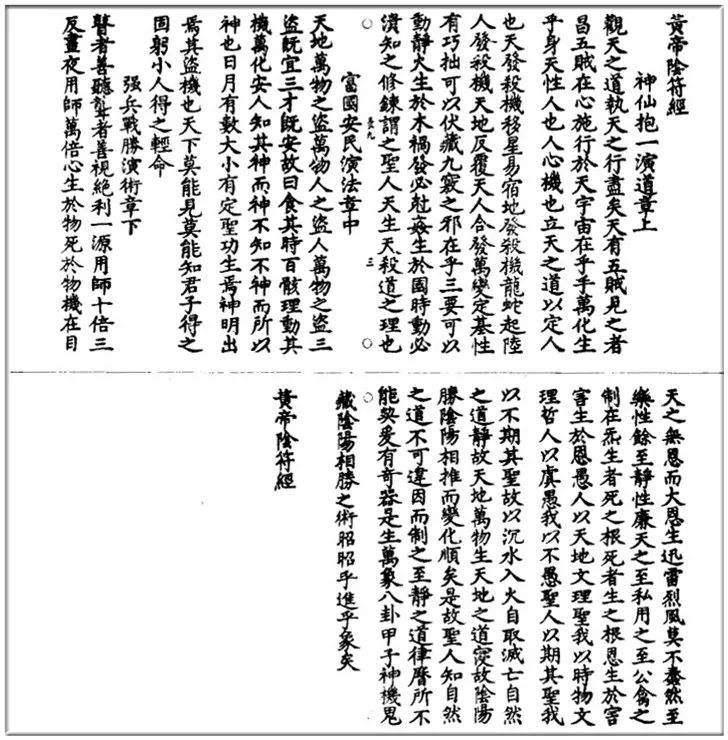 黃帝陰符經
神仙抱一演道章上
觀天之道執天之行盡矣天有五賊見之者
昌五賊在心施行於天宇宙在乎手萬化生
乎身天性人也人心機也立天之道以定人
也天發殺機移星易宿地發殺機龍蛇起陸
人發殺機天地反覆天人合發萬變定基性
有巧拙可以伏藏九竅之邪在乎三要可以
動靜火生於木禍發必尅姦生於國時動必
潰知之修鍊謂之聖人天生天殺道之理也
三
富國安民演法章中
天地萬物之盜萬物人之盜人萬物之盜三
盜既宜三才既安故曰食其時百骸理動其
機萬化安人知其神而神不知不神而所以
神也日月有數大小有定聖功生焉神明出
焉其盜機也天下莫能見莫能知君子得之
固躬小人得之輕命
强兵戰勝演術章下
瞽者善聽聾者善視絕利一源用師十倍三
反晝夜用師萬倍心生於物死於物機在目
天之無恩而大恩生迅雷烈風莫不蠢然至
樂性餘至靜性廉天之至私用之至公禽之
制在炁生者死之根死者生之根恩生於害
害生於恩愚人以天地文理聖我以時物文
理哲人以虞愚我以不愚聖人以期其聖我
以不期其聖故以沉水入火自取滅亡自然
之道靜故天地萬物生天地之道寖故陰陽
勝陰陽相推而變化順矣是故聖人知自然
之道不可違因而制之至靜之道律曆所不
能契爰有奇器是生萬象八卦甲子神機鬼
藏陰陽相勝之術昭昭乎進乎象矣
黃帝陰符經